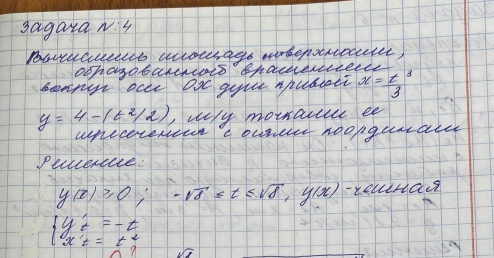 Задача N:4
Вычислить площадь поверхности,
образованной вращением
вокруг оси OX дуги кривой x = t³/3
y = 4-(t²/2), м/у точками ее
пересечения с осями координат
Решение:
y(x) ≥ 0; -√8 ≤ t ≤ √8, y(x) - четная
{ y't = -t
x't = t²
√8